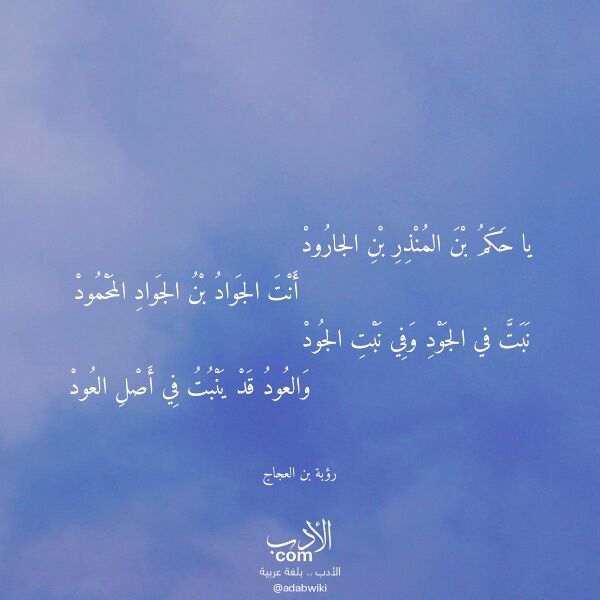 يا حَكَمُ بْنَ المُنْذِرِ بْنِ الجارُودْ
أَنْتَ الجَوادُ بْنُ الجَوادِ المَحْمُودْ
نَبَتَّ في الجَوْدِ وَفِي نَبْتِ الجُودْ
وَالعُودُ قَدْ يَنْبُتُ فِي أَصْلِ العُودْ
رؤبة بن العجاج
الأدب
com
الأدب .. بلغة عربية
@adabwiki